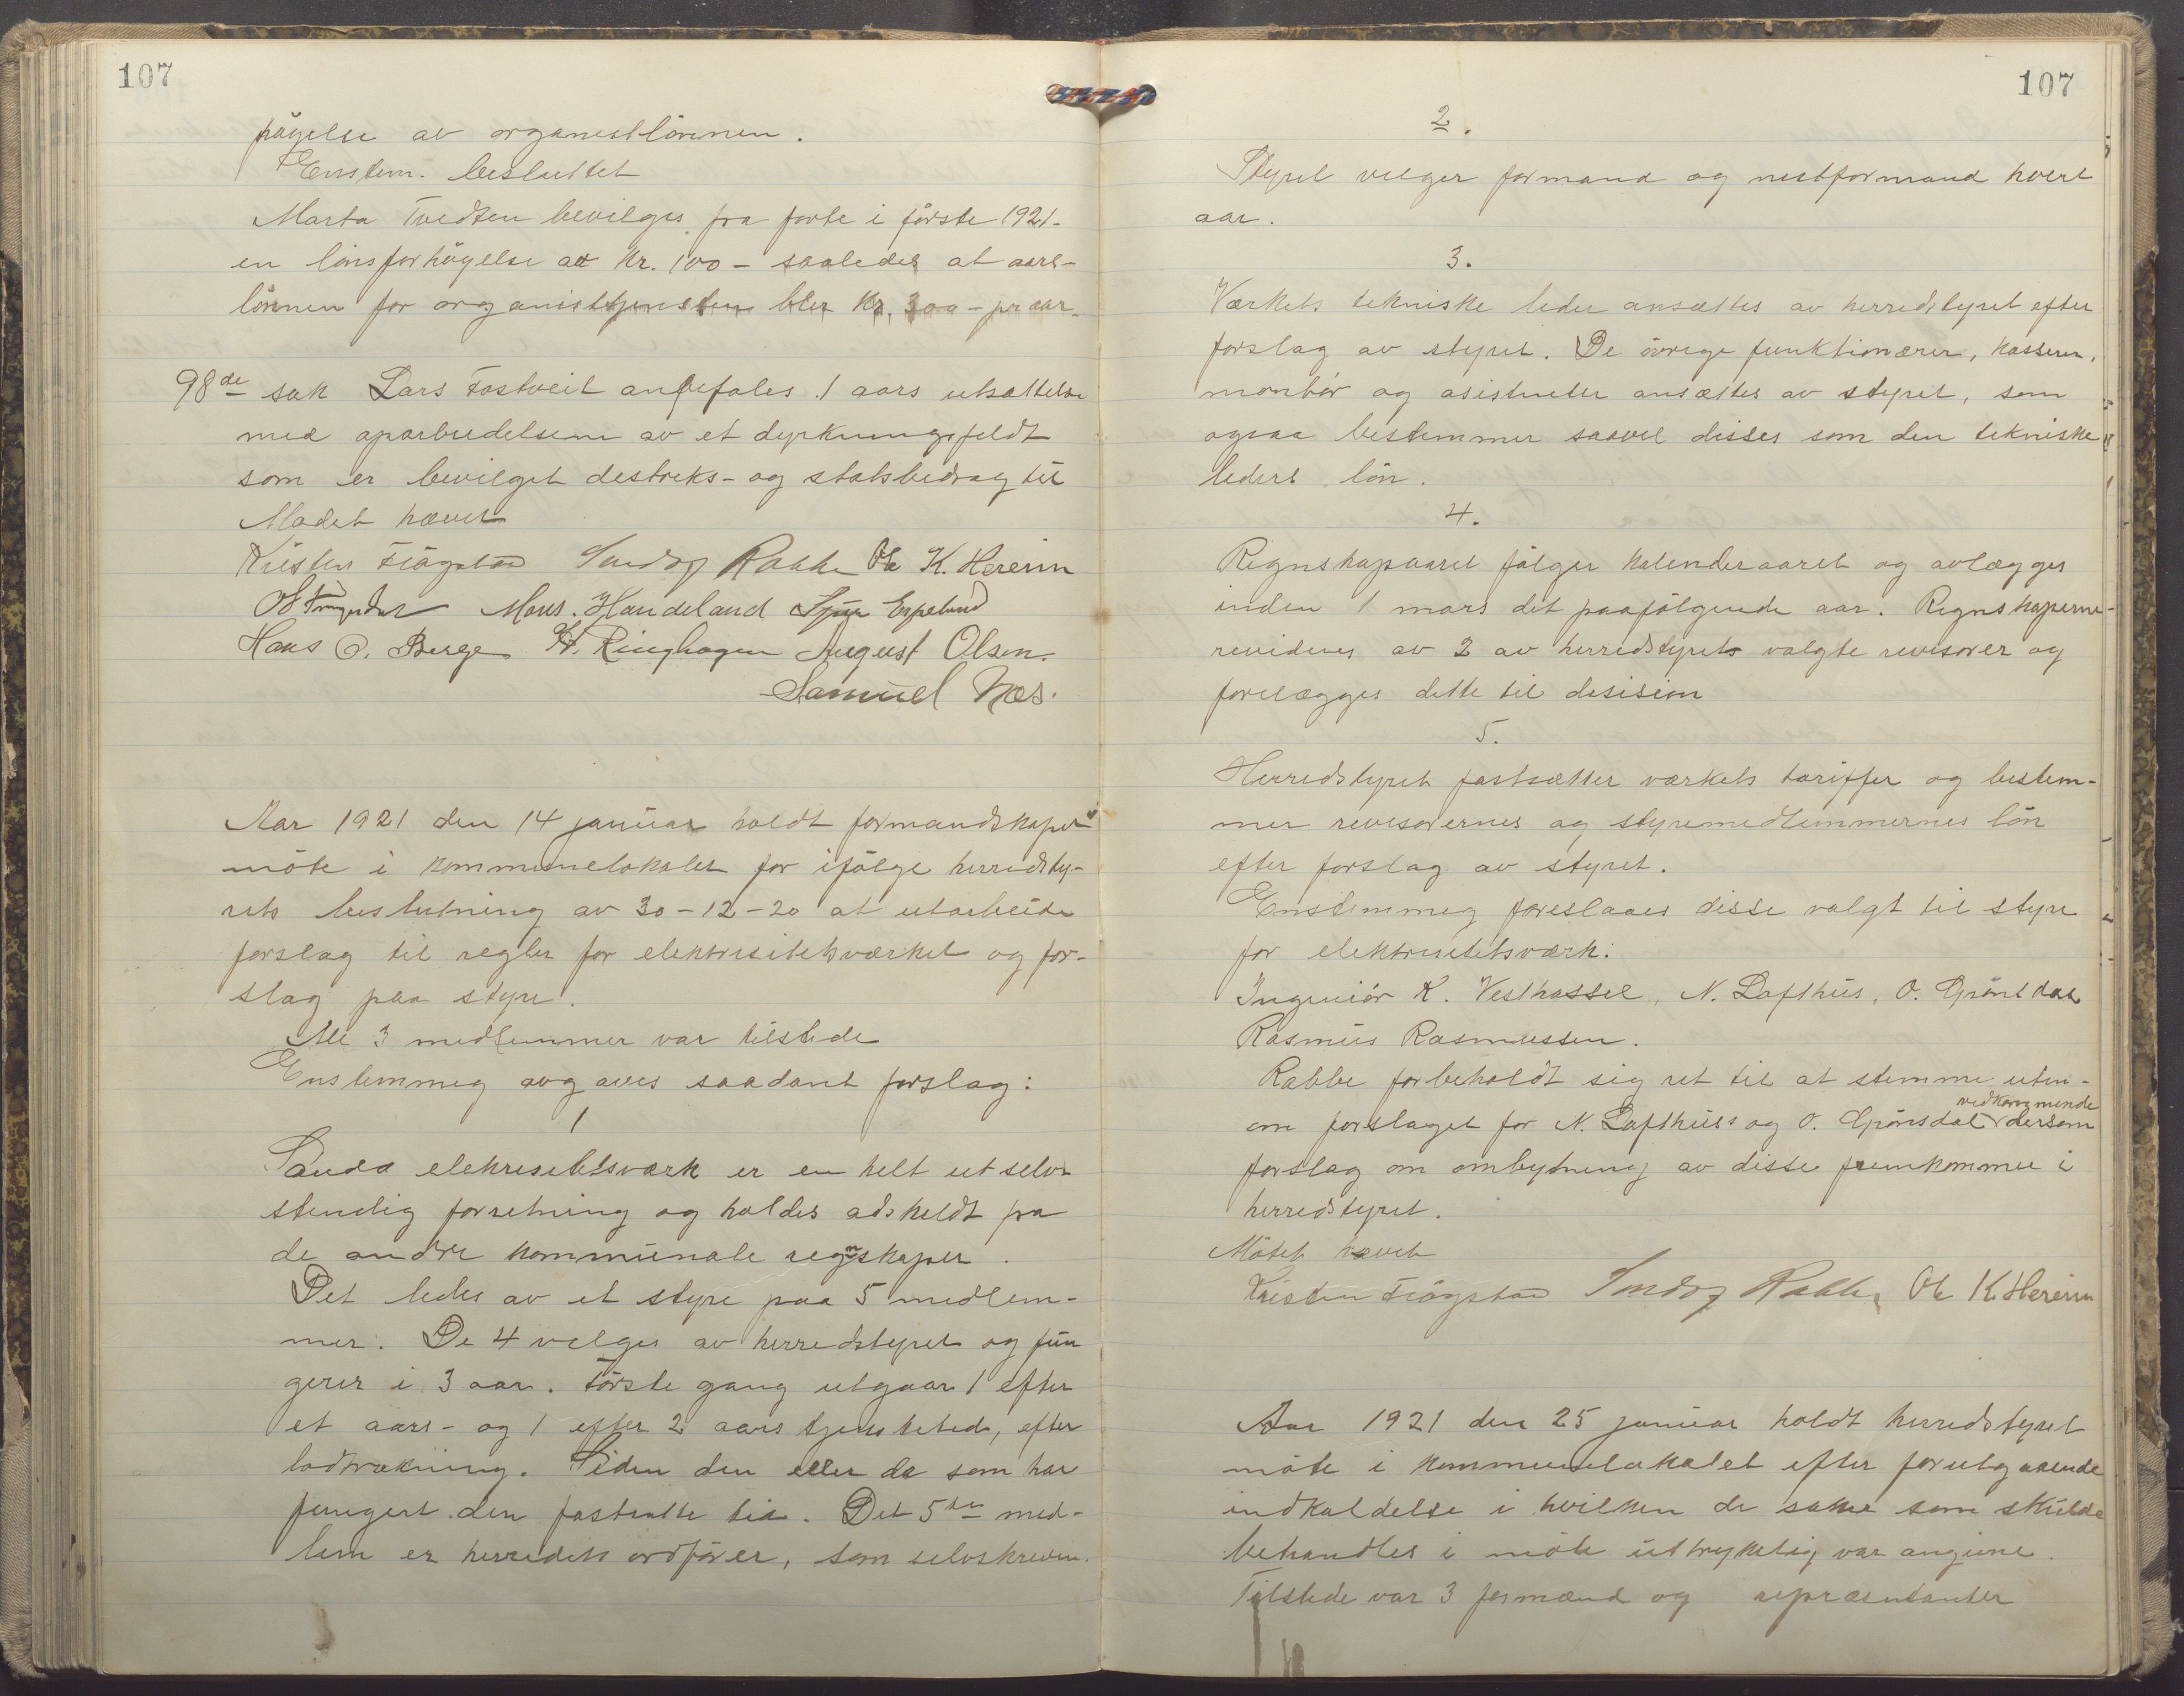 107
høyelse av organestlönnen.
Enstem. besluttet
Marta Tvedten bevilges fra forte i förste 1921-
en lönsforhöyelse att kr. 100 - saaledes at aars-
lönnen for organisttjenesten bler Kr. 300 - pr aar.
98de sak Lars Fostveit anbefales 1 aars utsættelse
med oparbeidelsene av et dyrkningsfeldt
som er bevilget destriks- og statsbidrag til
Mødet hævet
Kristen Fløgstad Sandog Rabbe Ole K. Hereim
Mons. Handeland Sjur Espeland
Hans O. Berge H. Ringhagen August Olsen.
Samuel Næs.
Aar 1921 den 14 januar holdt formandskapet
möte i kommunelokalet for ifölge herredsty-
rets beslutning av 30-12-20 at utarbeide
forslag til regler for elektrisitetsværket og for-
slag paa styre.
Alle 3 medlemmer var tilstede
Enstemmeg avgaves saadant forslag:
1
Sauda elekrisitetsværk er en helt ut selv-
stendig forretning og holdes adskeldt fra
de andre kommunale regnskaper.
Det ledes av et styre paa 5 medlem-
mer. De 4 velges av herredstyret og fun
gerer i 3 aar. Förste gang utgaar 1 efter
et aars- og 1 efter 2 aars tjenstetid, efter
lodtrækning. Siden den eller de som har
fungert den fastsatte tid. Det 5te med-
lem er herredets ordförer, som selvskreven.
107
2.
Styret velger formand og nestformand hvert
aar.
3.
Værkets tekniske leder ansættes av herredstyret efter
forslag av styret. De övrege funktionærer, kasserer,
montör og asistenter ansættes av styret, som
ogsaa bestemmer saavel disses som den tekniske
leders lön.
4.
Regnskapsaaret fölger kalenderaaret og avlægges
inden 1 mars det paafölgende aar. Regnskaperne
revideres av 2 av herredstyrets valgte revisorer og
forelægges dette til desision
5.
Herredstyret fastsætter værkets tariffer og bestem-
mer revisorernes og styremedlemmernes lön
efter forslag av styret.
Enstemmeg foreslaaes disse valgt til styre
for elektrisetetsværk:
Ingeniör K. Vesthassel, N. Lofthus, O. Grönsdal
Rasmus Rasmussen.
Rabbe forbeholdt sig ret til at stemme uten-
om forslaget for N. Lofthus og O. Grönsdal vedkommende dersom
forslag om ombytning av disse fremkommer i
herredstyret.
Mötet hævet
Kristen Fløgstad Sandog Rabbe Ole K. Hereim
Aar 1921 den 25 januar holdt herredstyret
möte i kommunelokalet efter forutgaaende
indkaldelse i hvilken de saker som skulde
behandles i möte uttrykkelig var angivne.
Tilstede var 3 formænd og repræsentanter